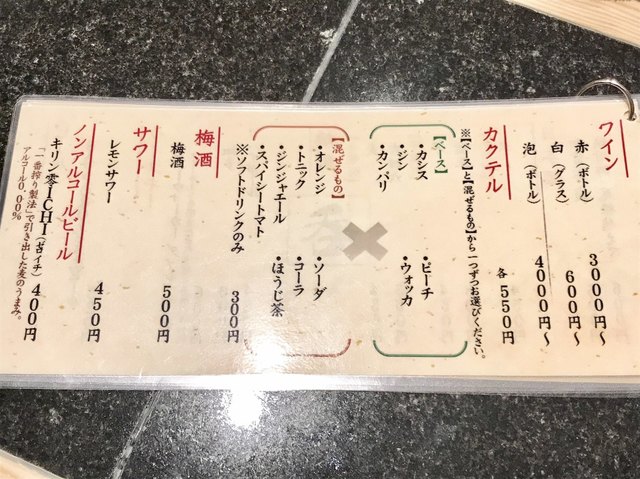 ワイン
赤（ボトル） 3000円〜
白（グラス） 600円〜
泡（ボトル） 4000円〜
カクテル 各550円
※【ベース】と【混ぜるもの】から一つずつお選びください。
【ベース】
・カシス ・ピーチ
・ジン ・ウォッカ
・カンパリ
×
【混ぜるもの】
・オレンジ ・ソーダ
・トニック ・コーラ
・ジンジャエール ・ほうじ茶
・スパイシートマト
※ソフトドリンクのみ 300円
梅酒
梅酒 500円
サワー
レモンサワー 450円
ノンアルコールビール
キリン零ICHI（ゼロイチ） 400円
「一番搾り製法」で引き出した麦のうまみ。
アルコール0.00%